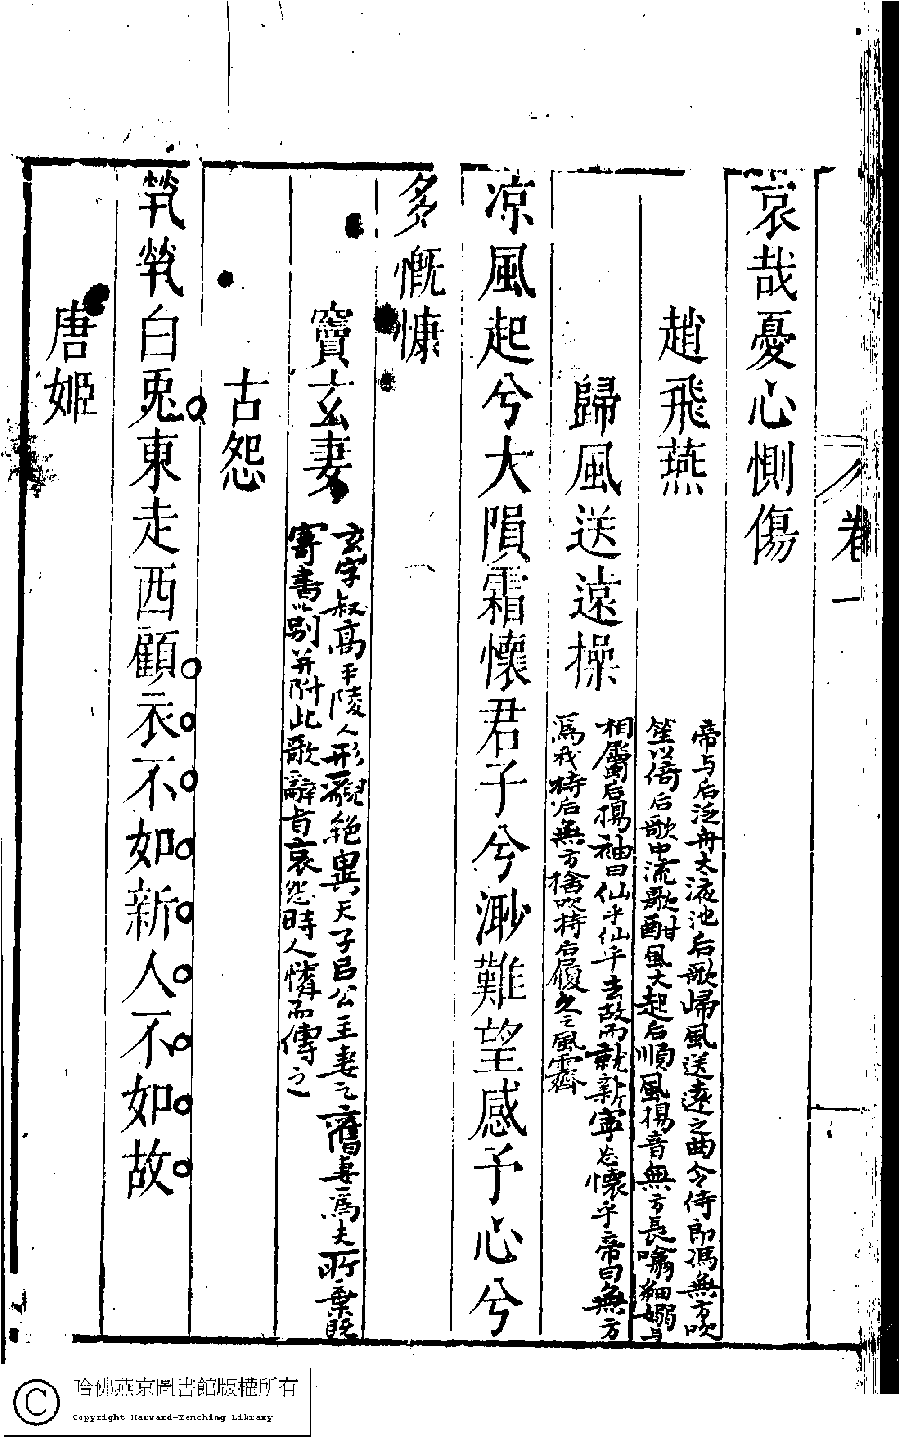 卷一
哀哉憂心惻傷
趙飛燕
歸風送遠操
帝与后泛舟太液池后歌歸風送遠之曲令侍郎馮無方吹
笙以倚后歌中流歌酣風大起后順風揚音無方長噏細嫋与
相屬后揚袖曰仙乎仙乎去故而就新寧忘懷乎帝曰無方
為我持后無方捨吹持后履久之風霽
凉風起兮大隕霜懷君子兮渺難望感予心兮
多慨慷
竇玄妻
玄字叔高平陵人形貌絕異天子以公主妻之舊妻為夫所棄既
寄書以別并附此歌辭旨哀怨時人憐而傳之
古怨
煢煢白兎東走西顧衣不如新人不如故
唐姬
哈佛燕京圖書館版權所有
Copyright Harvard-Yenching Library